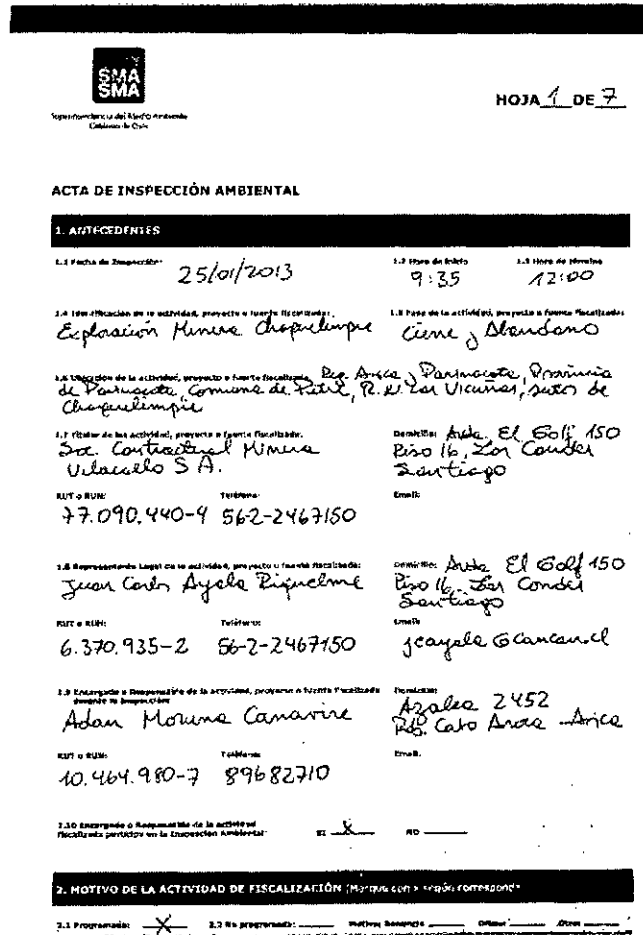 SMA
SMA
Superintendencia del Medio Ambiente
Gobierno de Chile
HOJA 1 DE 7
ACTA DE INSPECCIÓN AMBIENTAL
1. ANTECEDENTES
1.1 Fecha de Inspección:
25/01/2013
1.2 Hora de Inicio
9:35
1.3 Hora de término
12:00
1.4 Identificación de la actividad, proyecto o fuente fiscalizada:
Exploración Minera Choquelimpie
1.5 Fase de la actividad, proyecto o fuente fiscalizada:
Cierre y Abandono
1.6 Ubicación de la actividad, proyecto o fuente fiscalizada: Reg. Arica y Parinacota, Provincia
de Parinacota, Comuna de Putre, R.N. Las Vicuñas, de
Choquelimpie
1.7 Titular de la actividad, proyecto o fuente fiscalizada:
Soc. Contractual Minera
Vilacollo S.A.
Domicilio: Avda. El Golf 150
Piso 16, Las Condes
Santiago
RUT o RUN:
77.090.440-4
Teléfono:
56-2-2467150
Email:
1.8 Representante Legal de la actividad, proyecto o fuente fiscalizada:
Juan Carlos Ayala Riquelme
Domicilio: Avda El Golf 150
Piso 16 Las Condes
Santiago
RUT o RUN:
6.370.935-2
Teléfono:
56-2-2467150
Email:
1.9 Encargado o Responsable de la actividad, proyecto o fuente fiscalizada
durante la Inspección:
Adan Canavire
Domicilio:
Azalea 2452
Arica
RUT o RUN:
10.464.980-7
Teléfono:
89682710
Email:
1.10 Encargado o Responsable de la actividad
fiscalizada participó en la Inspección Ambiental:
SI X
NO
2. MOTIVO DE LA ACTIVIDAD DE FISCALIZACIÓN (Marque con x según corresponda
2.1 Programada: X 2.2 No programada: Motivo: Denuncia Oficio: Otro: